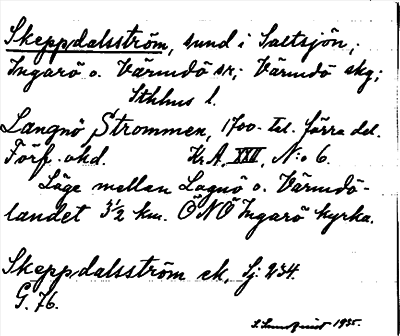 Skeppdalsström, sund i Saltsjön,
Ingarö o. Värmdö sr, Värmdö skg;
Sthlms l.
Langnö Strommen, 1700-tal. förra del.
Förf. okd. Kr. A. XXII, N:o 6.
Läge mellan Lagnö o. Värmdö-
landet 3½ km. ÖNÖ Ingarö kyrka.
Skeppdalsström ek. Lj: 234.
G. 76.
1935.